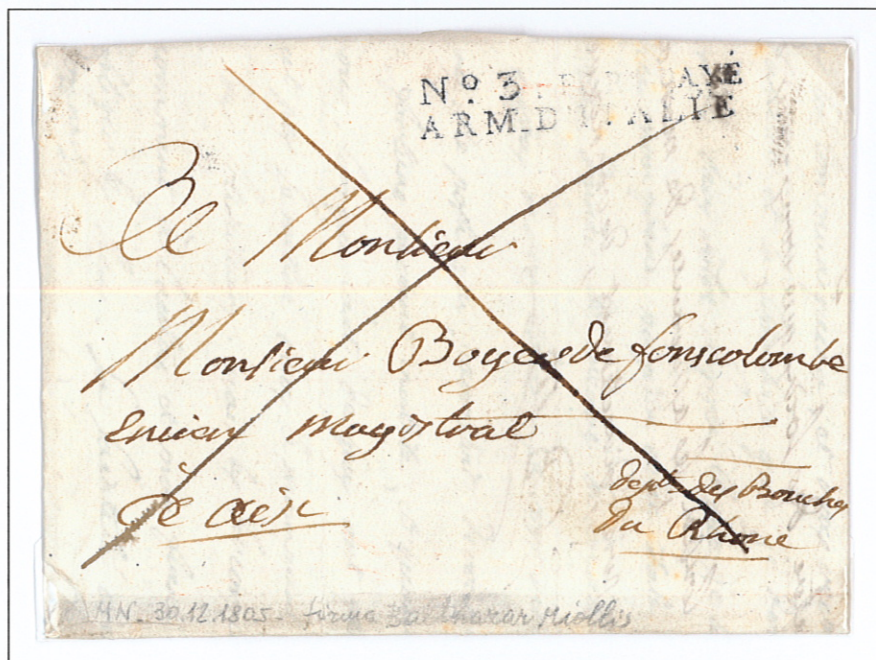 No 3 PORT PAYÉ
ARM. D'ITALIE
A Monsieur
Monsieur Boyer de fonscolombe
encien Magistrat
à aix
dept. des Bouches
Du Rhone
MN. 30.12.1805. firma Balthazar Miollis